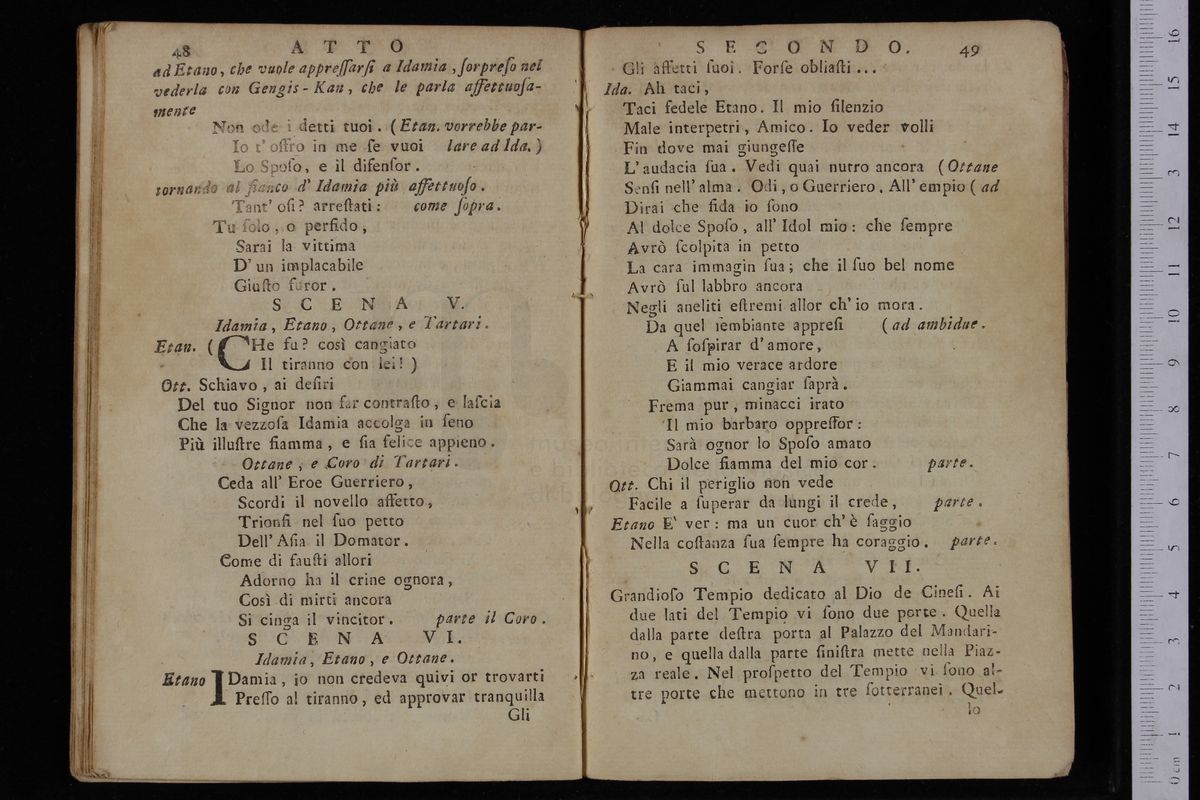 48 ATTO
ad Etano, che vuole appreſſarſi a Idamia, ſorpreſo nel
vederla con Gengis-Kan, che le parla affettuoſa-
mente
Non ode i detti tuoi. (Etan. vorrebbe par-
Io t'offro in me ſe vuoi lare ad Ida.)
Lo Spoſo, e il difenſor.
tornando al fianco d'Idamia più affettuoſo.
Tant' oſi? arreſtati: come ſopra.
Tu ſolo, o perfido,
Sarai la vittima
D'un implacabile
Giuſto furor.
SCENA V.
Idamia, Etano, Ottane, e Tartari.
Etan. (CHe fu? così cangiato
Il tiranno con lei!)
Ott. Schiavo, ai deſiri
Del tuo Signor non far contraſto, e laſcia
Che la vezzoſa Idamia accolga in ſeno
Più illuſtre fiamma, e ſia felice appieno.
Ottane, e Coro di Tartari.
Ceda all' Eroe Guerriero,
Scordi il novello affetto,
Trionfi nel ſuo petto
Dell' Aſia il Domator.
Come di fauſti allori
Adorno ha il crine ognora,
Così di mirti ancora
Si cinga il vincitor. parte il Coro.
SCENA VI.
Idamia, Etano, e Ottane.
Etano IDamia, io non credeva quivi or trovarti
Preſſo al tiranno, ed approvar tranquilla
Gli
SECONDO. 49
Gli affetti ſuoi. Forſe obliaſti...
Ida. Ah taci,
Taci fedele Etano. Il mio ſilenzio
Male interpetri, Amico. Io veder volli
Fin dove mai giungeſſe
L'audacia ſua. Vedi quai nutro ancora (Ottane
Senſi nell'alma. Odi, o Guerriero. All'empio (ad
Dirai che fida io ſono
Al dolce Spoſo, all' Idol mio: che ſempre
Avrò ſcolpita in petto
La cara immagin ſua; che il ſuo bel nome
Avrò ſul labbro ancora
Negli aneliti eſtremi allor ch'io mora.
Da quel ſembiante appreſi (ad ambidue.
A ſoſpirar d'amore,
E il mio verace ardore
Giammai cangiar ſaprà.
Frema pur, minacci irato
Il mio barbaro oppreſſor:
Sarà ognor lo Spoſo amato
Dolce fiamma del mio cor. parte.
Ott. Chi il periglio non vede
Facile a ſuperar da lungi il crede, parte.
Etano E' ver: ma un cuor ch'è ſaggio
Nella coſtanza ſua ſempre ha coraggio. parte.
SCENA VII.
Grandioſo Tempio dedicato al Dio de Cineſi. Ai
due lati del Tempio vi ſono due porte. Quella
dalla parte deſtra porta al Palazzo del Mandari-
no, e quella dalla parte ſiniſtra mette nella Piaz-
za reale. Nel proſpetto del Tempio vi ſono al-
tre porte che mettono in tre ſotterranei. Quel-
lo
0 cm 1 2 3 4 5 6 7 8 9 10 11 12 13 14 15 16